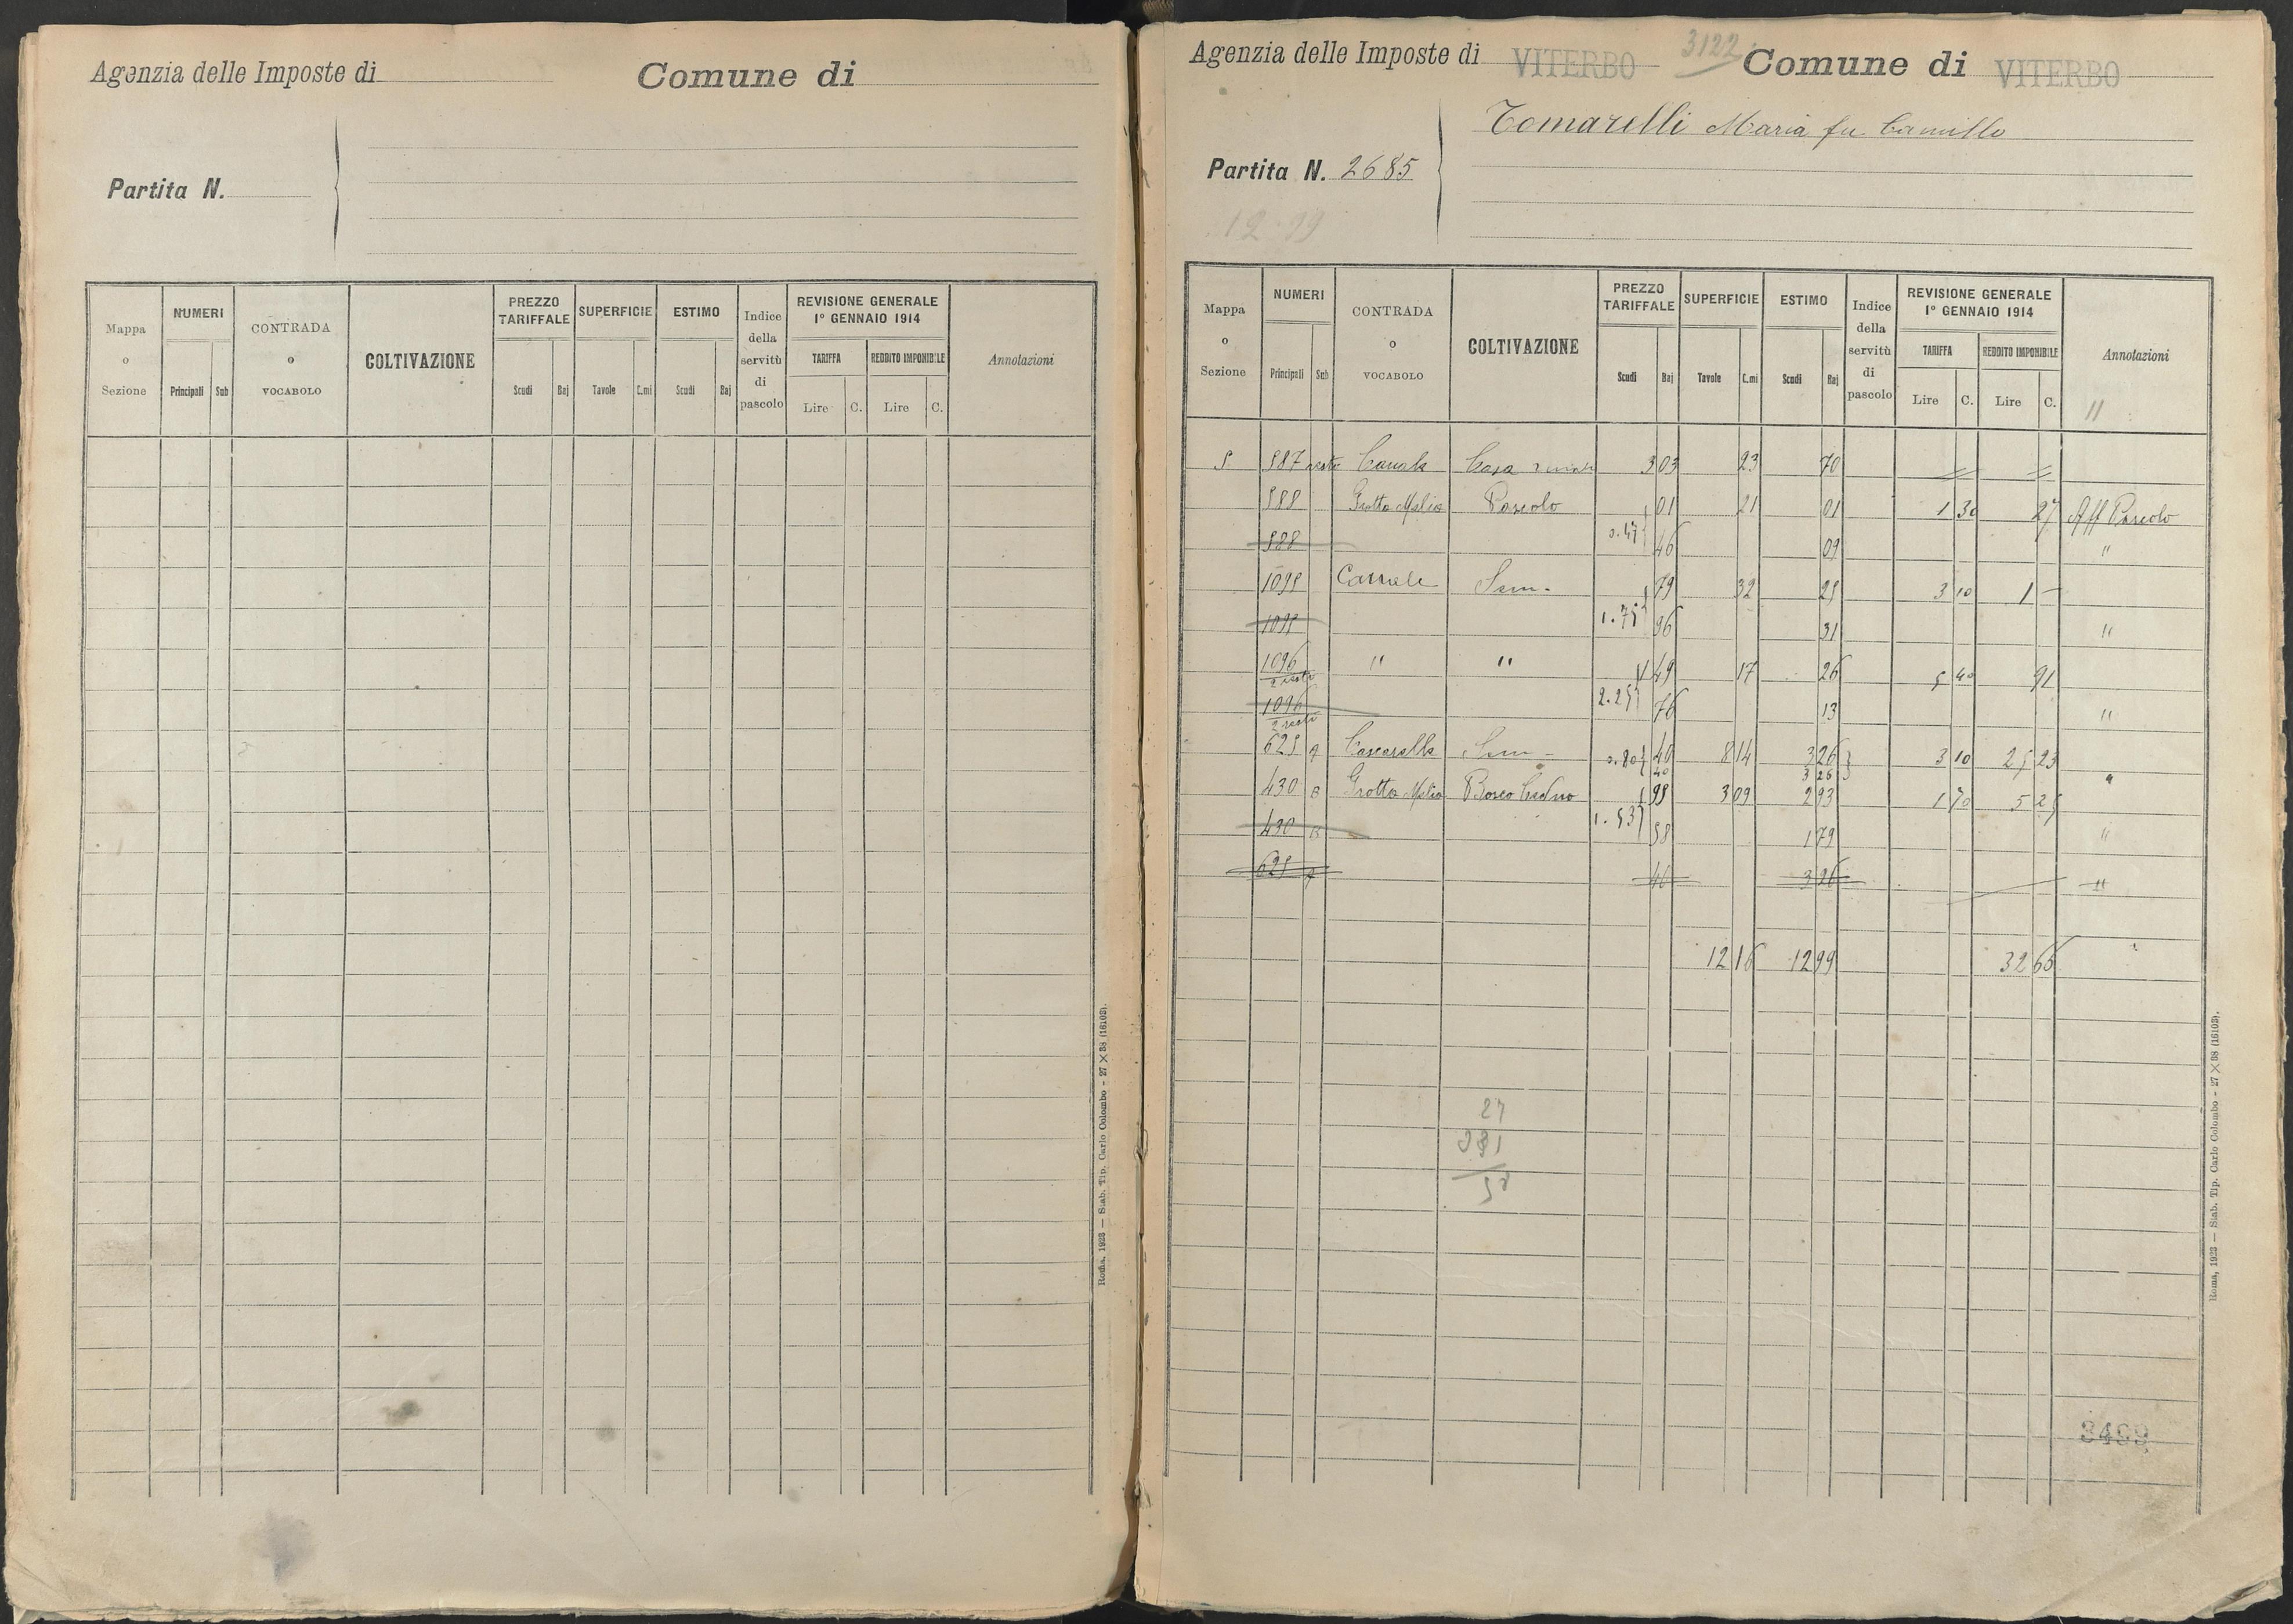 Agenzia delle Imposte di
Comune di
Partita N.
Mappa o Sezione
NUMERI
Principali Sub
CONTRADA o VOCABOLO
COLTIVAZIONE
PREZZO TARIFFALE
Scudi Baj
SUPERFICIE
Tavole C.mi
ESTIMO
Scudi Baj
Indice della servitù di pascolo
REVISIONE GENERALE 1° GENNAIO 1914
TARIFFA
Lire C.
REDDITO IMPONIBILE
Lire C.
Annotazioni
Roma, 1923 — Stab. Tip. Carlo Colombo - 27 × 38 (16103).
Agenzia delle Imposte di VITERBO 3122 Comune di VITERBO
Tomarelli Maria fu Camillo
Partita N. 2685
12.99
Mappa o Sezione
NUMERI
Principali Sub
CONTRADA o VOCABOLO
COLTIVAZIONE
PREZZO TARIFFALE
Scudi Baj
SUPERFICIE
Tavole C.mi
ESTIMO
Scudi Baj
Indice della servitù di pascolo
REVISIONE GENERALE 1° GENNAIO 1914
TARIFFA
Lire C.
REDDITO IMPONIBILE
Lire C.
Annotazioni
11
Casa 3 03 23 70
Pascolo 01 21 01 1 30 27 Aff Pascolo
46 09 "
Sem. 79 32 25 3 10 1 —
96 31 "
1096 " " 49 17 26 5 40 91
1096 76 13 "
Sem 40 8 14 3 26 3 10 25 23
40 3 26 "
430 Grotta Bosco Ceduo 95 3 09 2 93 1 70 5 25
430 58 1 79 "
40 3 26 "
12 16 12 99 32 66
27
3499
Roma, 1923 — Stab. Tip. Carlo Colombo - 27 × 38 (16103).